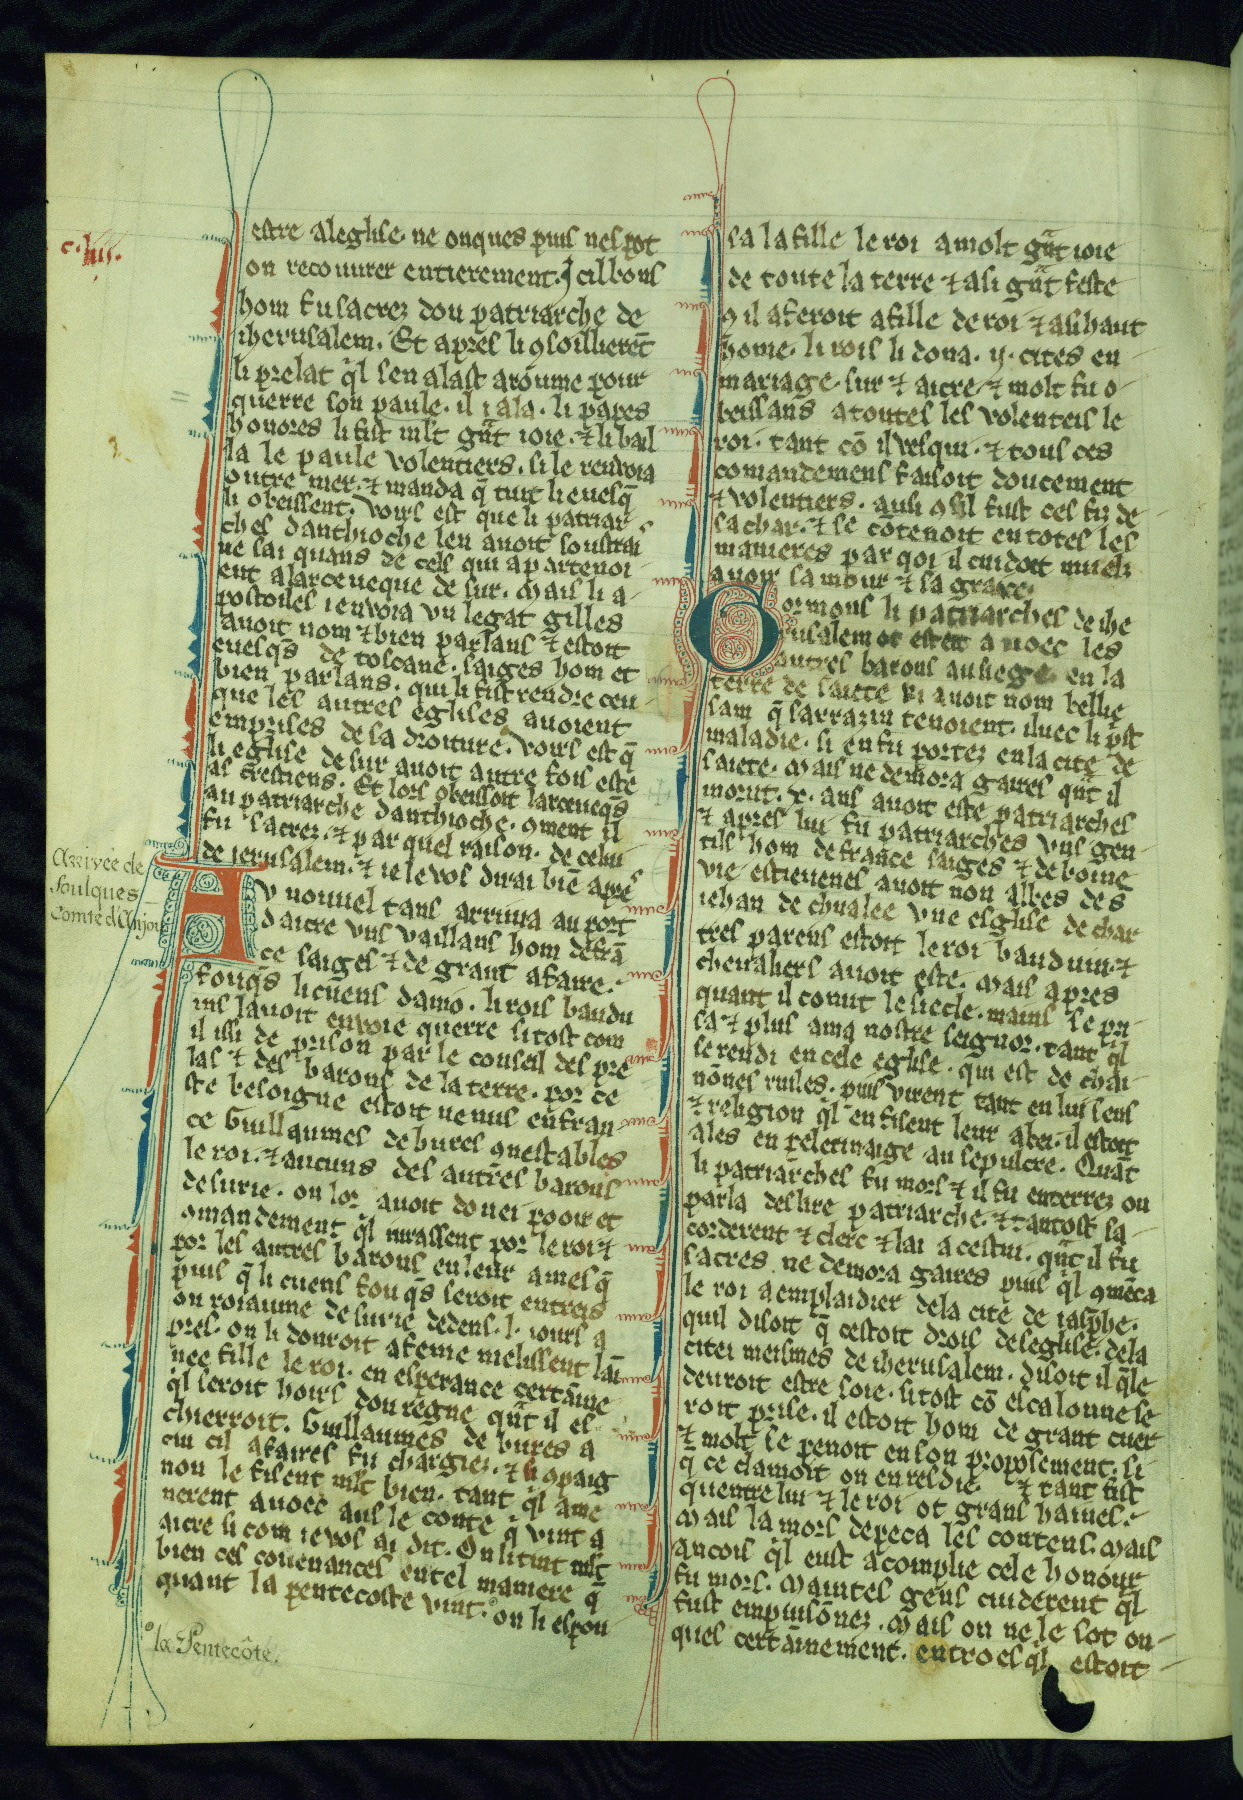 c. liii.
estre aleglise. ne onques puis nel pot
on recouurer entierement. J cil bons
hom fu sacrez dou patriarche de
iherusalem. Et apres li ꝯsoillierēt
li prelat q̄l sen alast a rōume pour
querre son paule. il i ala. li papes
honores li fist ml't gr̄t ioie. ⁊ li bail
la le paule volentiers. si le renuoia
outre mer. ⁊ manda q̄ tuit li euesq̄
li obeissent. Voirs est que li patriar
ches danthioche len auoit soustrai
ne sai quans de cels qui apartenoi
ent a larceueque de sur. Mais li a
postoiles i enuoia vn legat gilles
auoit nom ⁊ bien parlans ⁊ estoit
euesq̄s de toscane. saiges hom et
bien parlans. qui li fist rendre ceu
que les autres eglises auoient
emprises de la droiture. voirs est q̄
li eglise de sur auoit autre fois este
as crestiens. Et lors obeissoit larceueq̄s
au patriarche danthioche. ꝯment il
fu sacrez. ⁊ par quel raison. de celui
de ierusalem. ⁊ ie le vos dirai biē apres
Arrivée de
foulques
Comte d'Anjou
A v nouuel tans arriua au port
daicre vns vaillans hom de frā
ce saiges ⁊ de grant afaire.
fouq̄s li cuens damo. li rois baudu
ins lauoit enuoie querre si tost com
il issi de prison par le conseil des pre
las ⁊ des barons de la terre. por ce
ste besoigne estoit uenus en fran
ce Guillaumes de bures ꝯnestables
le roi. ⁊ aucuns des autres barons
de surie. on lor auoit donei pooir et
ꝯmandement q̄l iurassent por le roi ⁊
por les autres barons en leur ames q̄
puis q̄ li cuens fouq̄s seroit entreis
ou roiaume de surie dedens .l. iours a
pres. on li donroit a feme melissent lai
nee fille le roi. en esperance certaīne
q̄l seroit hoirs dou regne qn̄t il es
chierroit. Guillaumes de bures a
cui cil afaires fu chargiez. ⁊ li ꝯpaig
non le fisent ml't bien. tant q̄l ame
nerent auoec aus le conte q̄ vint a
aicre si com ie vos ai dit. On li tint ml't
bien ces couenances en tel maniere q̄
quant la pentecoste vint. on li espou
la Pentecôte.
sa la fille le roi a molt gr̄t ioie
de toute la terre ⁊ a si gr̄t feste
ꝯ il aferoit a fille de roi ⁊ a si haut
home. li rois li dona .ii. cites en
mariage. sur ⁊ aicre. ⁊ molt fu o
beissans a toutes les volenteis le
roi. tant cō il vesqui. ⁊ tous ces
comandemens faisoit doucement
⁊ volentiers. ausi ꝯ sil fust ces fiz de
sa char. ⁊ se cōtenoit en totes les
manieres par qoi il cuidoit mielz
auoir samour ⁊ sa grace.
G ormons li patriarches de ihe
rusalem ot estett auoec les
autres barons au siege en la
terre de saiete ki auoit nom belhe
sam q̄ sarrazin tenoient. iluec li pst
maladie. si en fu portez en la cite de
saiete. Mais ne demora gaires qn̄t il
morut. x. ans auoit este patriarches
⁊ apres lui fu patriarches vns gen
tils hom de france saiges ⁊ de boine
vie estieuenes auoit non abbes de s
iehan de chualee vne esglise de char
tres parens estoit le roi bauduin. ⁊
cheualiers auoit este. Mais apres
quant il conut le siecle. mains se pri
sa ⁊ plus ama nostre seignor. tant q̄l
se rendi en cele eglise. qui est de chai
nōnes ruiles. puis virent tant en lui sens
⁊ religion q̄l en fisent leur abei. il estoit
ales en pelerinaige au sepulcre. Quāt
li patriarches fu mors ⁊ il fu enterrez on
parla deslire patriarche. ⁊ tantost sa
corderent ⁊ clerc ⁊ lai a cestui. qn̄t il fu
sacres. ne demora gaires puis q̄l ꝯmēca
le roi a emplaidier de la cite de iasphe.
quil disoit q̄ cestoit drois de leglise. de la
citei meismes de iherusalem. disoit il q̄le
deuroit estre soie. si tost cō escalonne se
roit prise. il estoit hom de grant cuer
⁊ molt se penoit en son proposement. si
q̄ ce clamoit on enresdie. ⁊ tant fist
quentre lui ⁊ le roi ot grans haines.
Mais la mors depeca les contens. Mais
ancois q̄l eust acomplie cele honour
fu mors. Maintes gens cuiderent q̄l
fust empuisōnez. Mais on ne le sot on
ques certaīnement. entroes q̄l estoit